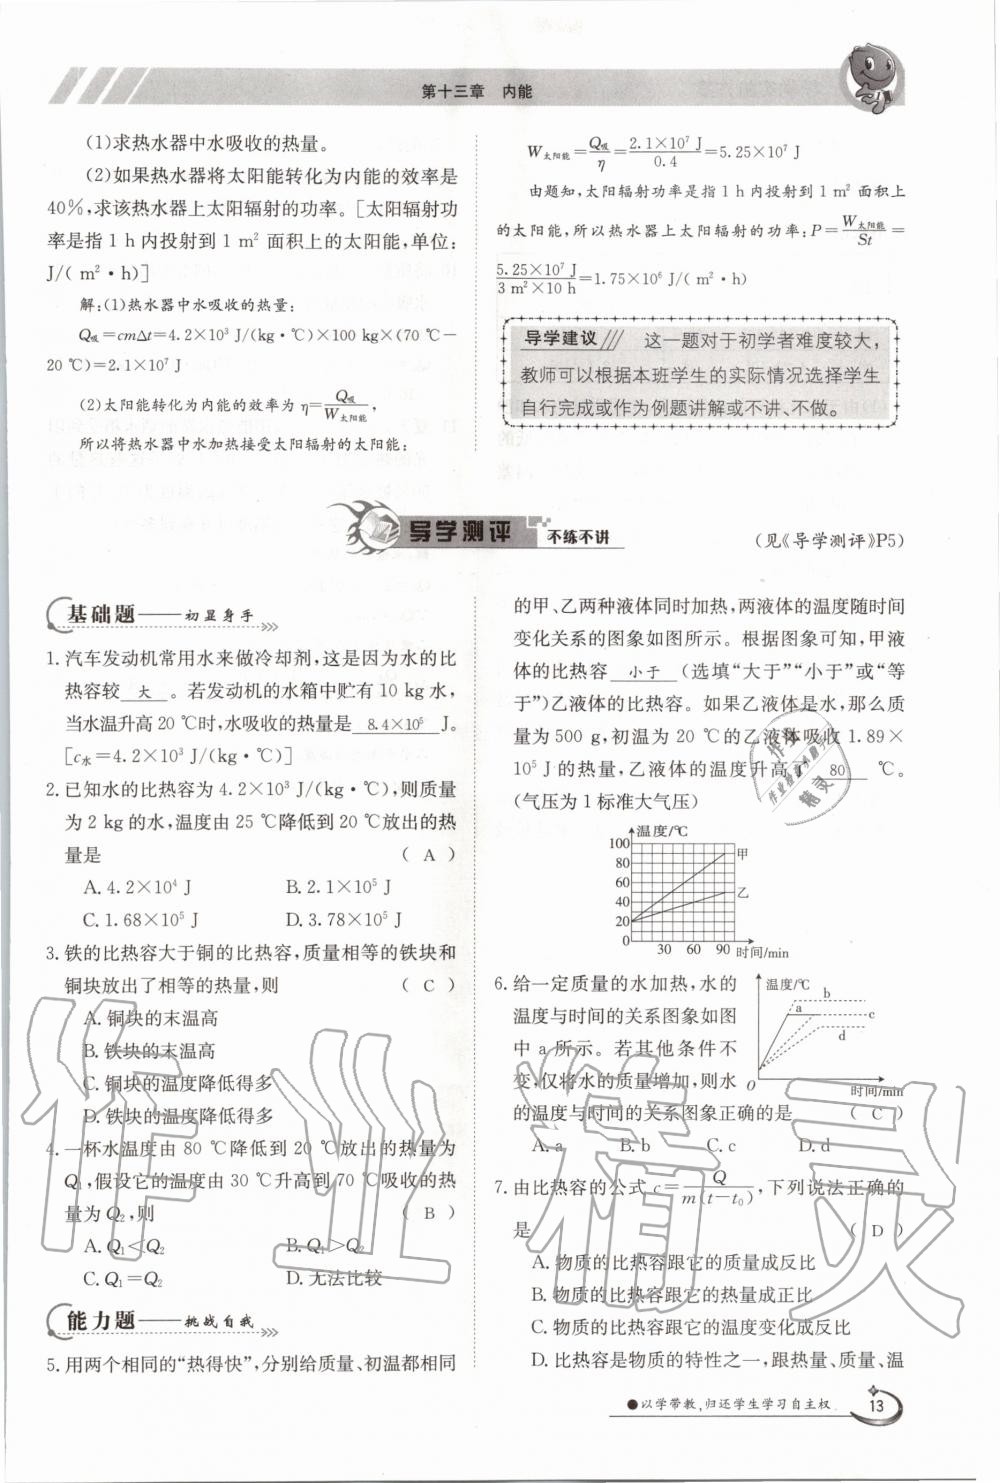 第十三章 内能
(1)求热水器中水吸收的热量。
(2)如果热水器将太阳能转化为内能的效率是
40%,求该热水器上太阳辐射的功率。[太阳辐射功
率是指 1 h 内投射到 1 m² 面积上的太阳能,单位:
J/( m²·h)]
解:(1)热水器中水吸收的热量:
Q吸=cmΔt=4.2×10³ J/(kg·℃)×100 kg×(70 ℃-
20 ℃)=2.1×10⁷ J
(2)太阳能转化为内能的效率为 η=Q吸/W太阳能,
所以将热水器中水加热接受太阳辐射的太阳能:
W太阳能=Q吸/η=2.1×10⁷ J/0.4=5.25×10⁷ J
由题知,太阳辐射功率是指 1 h 内投射到 1 m² 面积上
的太阳能,所以热水器上太阳辐射的功率:P=W太阳能/St=
5.25×10⁷ J/3 m²×10 h=1.75×10⁶ J/( m²·h)
导学建议 这一题对于初学者难度较大,
教师可以根据本班学生的实际情况选择学生
自行完成或作为例题讲解或不讲、不做。
导学测评 不练不讲
(见《导学测评》P5)
基础题——初显身手
1. 汽车发动机常用水来做冷却剂,这是因为水的比
热容较 大 。若发动机的水箱中贮有 10 kg 水,
当水温升高 20 ℃时,水吸收的热量是 8.4×10⁵ J。
[c水=4.2×10³ J/(kg·℃)]
2. 已知水的比热容为 4.2×10³ J/(kg·℃),则质量
为 2 kg 的水,温度由 25 ℃降低到 20 ℃放出的热
量是 ( A )
A. 4.2×10⁴ J B. 2.1×10⁵ J
C. 1.68×10⁵ J D. 3.78×10⁵ J
3. 铁的比热容大于铜的比热容,质量相等的铁块和
铜块放出了相等的热量,则 ( C )
A. 铜块的末温高
B. 铁块的末温高
C. 铜块的温度降低得多
D. 铁块的温度降低得多
4. 一杯水温度由 80 ℃降低到 20 ℃放出的热量为
Q₁,假设它的温度由 30 ℃升高到 70 ℃吸收的热
量为 Q₂,则 ( B )
A. Q₁<Q₂ B. Q₁>Q₂
C. Q₁=Q₂ D. 无法比较
能力题——挑战自我
5. 用两个相同的“热得快”,分别给质量、初温都相同
的甲、乙两种液体同时加热,两液体的温度随时间
变化关系的图象如图所示。根据图象可知,甲液
体的比热容 小于 (选填“大于”“小于”或“等
于”)乙液体的比热容。如果乙液体是水,那么质
量为 500 g,初温为 20 ℃的乙液体吸收 1.89×
10⁵ J 的热量,乙液体的温度升高了 80 ℃。
(气压为 1 标准大气压)
温度/℃
100
80
60
40
20
0
30 60 90 时间/min
甲
乙
6. 给一定质量的水加热,水的
温度与时间的关系图象如图
中 a 所示。若其他条件不
变,仅将水的质量增加,则水
的温度与时间的关系图象正确的是 ( C )
温度/℃
b
a
c
d
O
时间/min
A. a B. b C. c D. d
7. 由比热容的公式 c=Q/m(t-t₀),下列说法正确的
是 ( D )
A. 物质的比热容跟它的质量成反比
B. 物质的比热容跟它的热量成正比
C. 物质的比热容跟它的温度变化成反比
D. 比热容是物质的特性之一,跟热量、质量、温
●以学带教,归还学生学习自主权 13
作业精灵